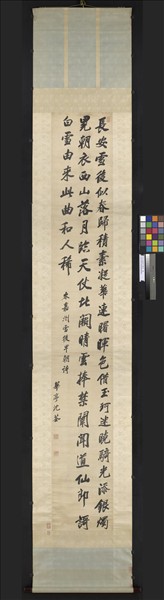 長安雪後似春歸積素凝華連曙暉色借玉珂迷曉騎光添銀燭
晃朝衣西山落月臨天仗北闕晴雲捧禁闈聞道仙郎歌
白雪由來此曲和人稀
岑嘉州雪後早朝詩
華亭沈荃